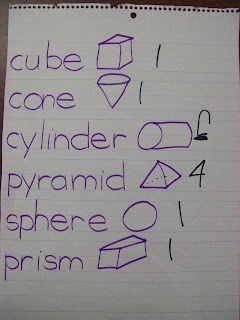 cube 1
cone 1
cylinder
pyramid 4
sphere 1
prism 1